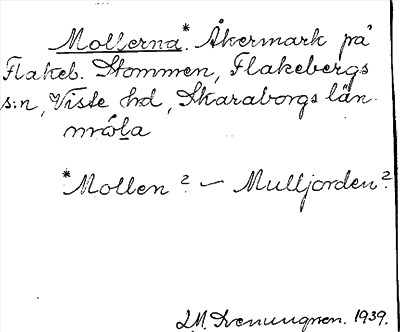 Mollerna*. Åkermark på
Flakeb. Stommen, Flakebergs
s:n, Viste hd, Skaraborgs län.

*Mollen? – Mulljorden?
1939.